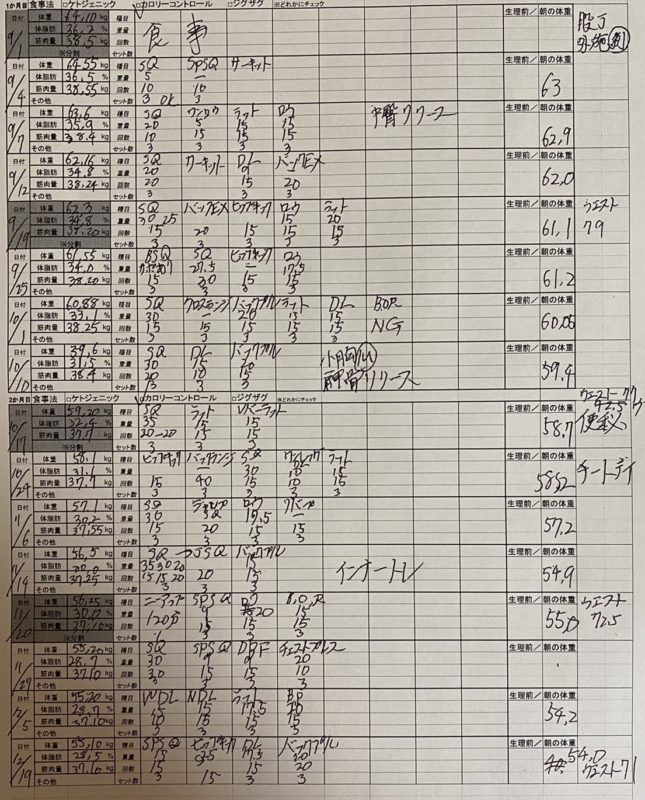 1か月目 食事法 □ケトジェニック ☑カロリーコントロール □ジグザグ ※どれかにチェック
日付 9/1 体重 64.10 kg 種目 食事 生理前／朝の体重
体脂肪 36.2 % 重量
筋肉量 38.5 kg 回数
※分割 セット数
日付 9/4 体重 64.55 kg 種目 SQ SPSQ サーキット 生理前／朝の体重 63
体脂肪 36.5 % 重量 5 ー
筋肉量 38.55 kg 回数 10 10
その他 セット数 3 OK 3
日付 9/7 体重 63.6 kg 種目 SQ ラット ロウ 中臀リリース 生理前／朝の体重 62.9
体脂肪 35.9 % 重量 20 5 15 15
筋肉量 38.4 kg 回数 10 15 15 15
その他 セット数 3 3 3 3
日付 9/12 体重 62.16 kg 種目 SQ サーキット DL バックEX 生理前／朝の体重 62.0
体脂肪 34.8 % 重量 20 9
筋肉量 38.24 kg 回数 20 15 20
その他 セット数 3 3 3
日付 9/19 体重 62.3 kg 種目 SQ バックEX ヒップキック ロウ ラット 生理前／朝の体重 61.1 ウエスト 79
体脂肪 34.8 % 重量 30.25 15 20
筋肉量 38.20 kg 回数 15 20 15 15 15
※分割 セット数 3 3 3 3 3
日付 9/25 体重 61.55 kg 種目 BSQ SQ ヒップキック ロウ 生理前／朝の体重 61.2
体脂肪 34.0 % 重量 27.5 ー 17.5
筋肉量 38.20 kg 回数 15 20 15 15
その他 セット数 3 3 3 3
日付 10/1 体重 60.88 kg 種目 SQ クロスランジ バックプル ラット DL BOR 生理前／朝の体重 60.05
体脂肪 33.1 % 重量 30 ー 20 15 15 NG
筋肉量 38.25 kg 回数 15 15 15 15 15
その他 セット数 3 3 3 3 3
日付 10/10 体重 kg 種目 SQ DL バックプル 小胸 生理前／朝の体重 59.4
体脂肪 31.5 % 重量 30 リリース
筋肉量 38.4 kg 回数 20
その他 セット数 3 3 3
2か月目 食事法 □ケトジェニック ☑カロリーコントロール □ジグザグ ※どれかにチェック
日付 10/17 体重 59.20 kg 種目 SQ ラット Vバーラット 生理前／朝の体重 58.7 ウエスト
体脂肪 32.4 % 重量 35 15 15
筋肉量 37.7 kg 回数 20-20 15 15
※分割 セット数 3 3 3
日付 10/24 体重 58.1 kg 種目 ヒップキック バックランジ SQ ワンレッグDL ラット 生理前／朝の体重 58.52 チートデイ
体脂肪 31.1 % 重量 ー 30 10 15
筋肉量 37.7 kg 回数 15 40 15 15 15
その他 セット数 3 3 3 3 3
日付 11/6 体重 57.1 kg 種目 SQ ロウ 生理前／朝の体重 57.2
体脂肪 30.2 % 重量 30 SQ 17.5 ー
筋肉量 37.55 kg 回数 15 20 15 15
その他 セット数 3 3 3 3
日付 11/14 体重 56.5 kg 種目 SQ →JSQ バックプル インナートレ 生理前／朝の体重 54.9
体脂肪 30.0 % 重量 35 30 20 15
筋肉量 37.25 kg 回数 15 15 20 20 15
その他 セット数 3 3 3
日付 11/20 体重 56.25 kg 種目 ニーアップ SPSQ ロウ B.O.R 生理前／朝の体重 55.0 ウエスト 72.5
体脂肪 30.0 % 重量 120秒 4 20 15
筋肉量 37.10 kg 回数 15 15 15
※分割 セット数 3 3 3
日付 11/27 体重 55.20 kg 種目 SQ SPSQ チェストプレス 生理前／朝の体重
体脂肪 28.7 % 重量 30 9 9 20
筋肉量 37.10 kg 回数 30 15 15 10
その他 セット数 3 3 3 3
日付 12/5 体重 55.20 kg 種目 WDL NDL ラット BP 生理前／朝の体重 54.2
体脂肪 28.7 % 重量 15 15 17.5 20
筋肉量 37.10 kg 回数 15 15 15
その他 セット数 3 3 3 3
日付 12/19 体重 55.10 kg 種目 SPSQ ヒップキック DL バックプル 生理前／朝の体重 54.0 ウエスト71
体脂肪 28.5 % 重量 15 15 20
筋肉量 37.10 kg 回数 15 15 20
その他 セット数 3 15 3 3